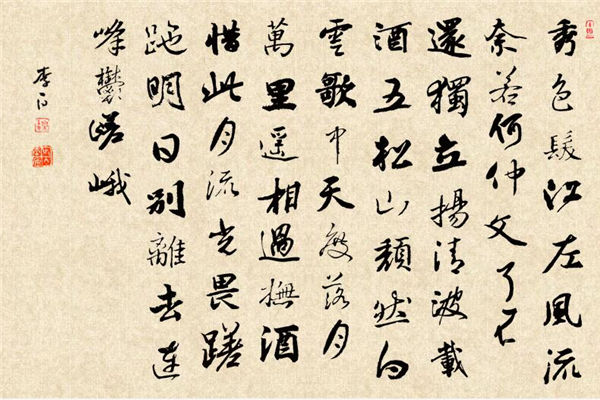 秀色髮江左風流
奈若何仲文了不
還獨立揚清波載
酒五松山頹然白
雲歌中天度落月
萬里遥相過撫酒
惜此月流光畏蹉
跎明日別離去連
峰鬱嵯峨
李白